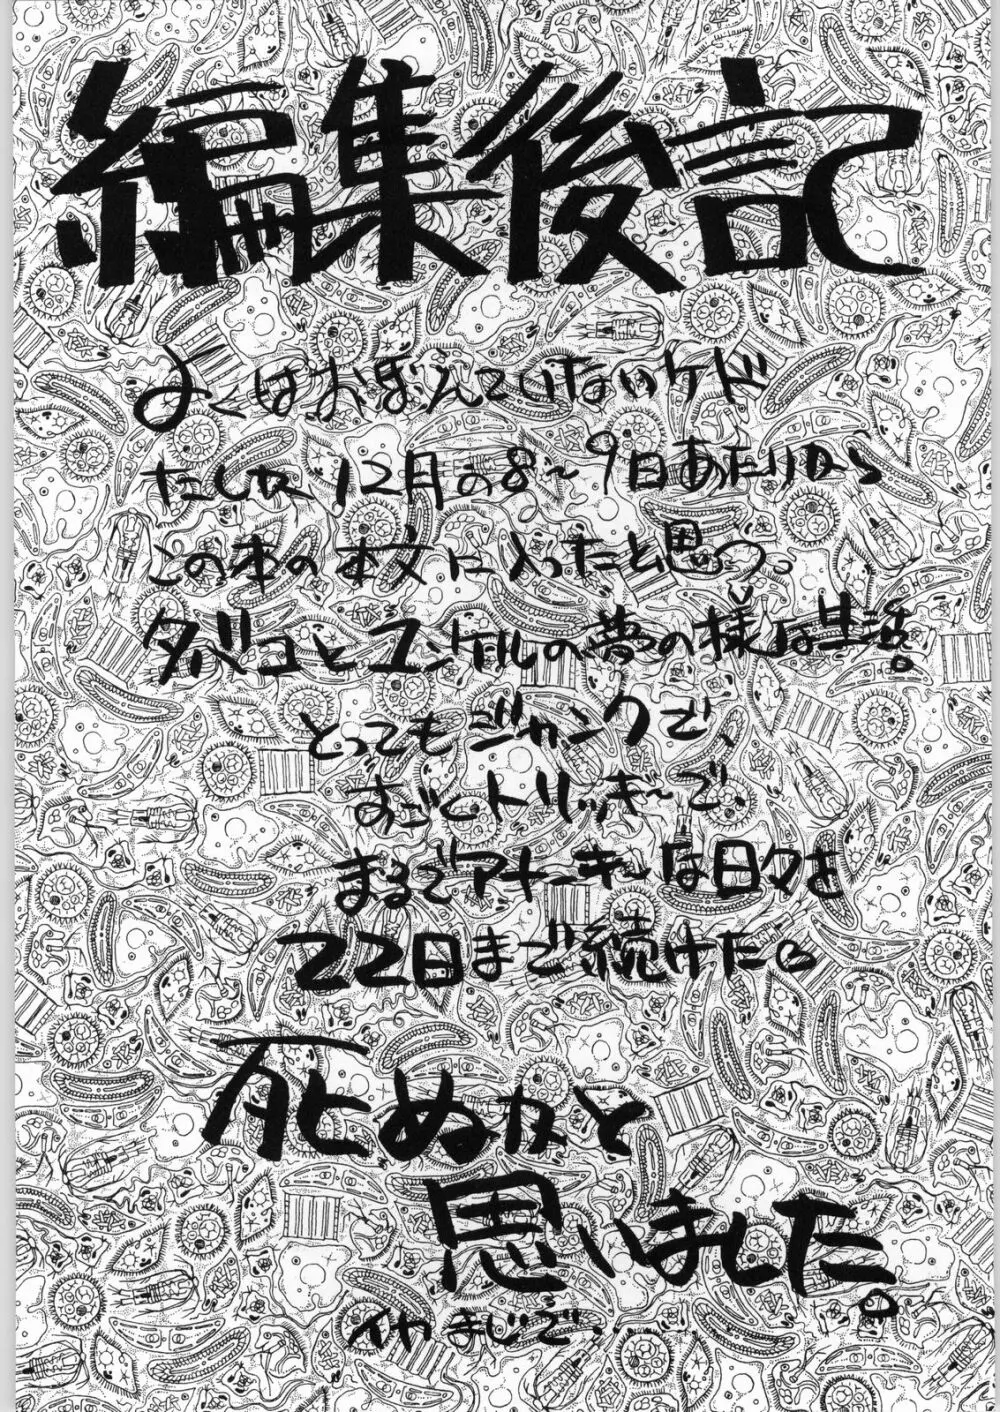 編集後記
よくはおぼえていないケド
たしか12月の8〜9日あたりから
この本の本文に入ったと思う。
タバコとユンケルの夢の様な生活。
とってもジャンクで、
すごくトリッキーで、
まるでアナーキーな日々を
22日まで続けた。
死ぬかと
思いました。
イヤまじで、